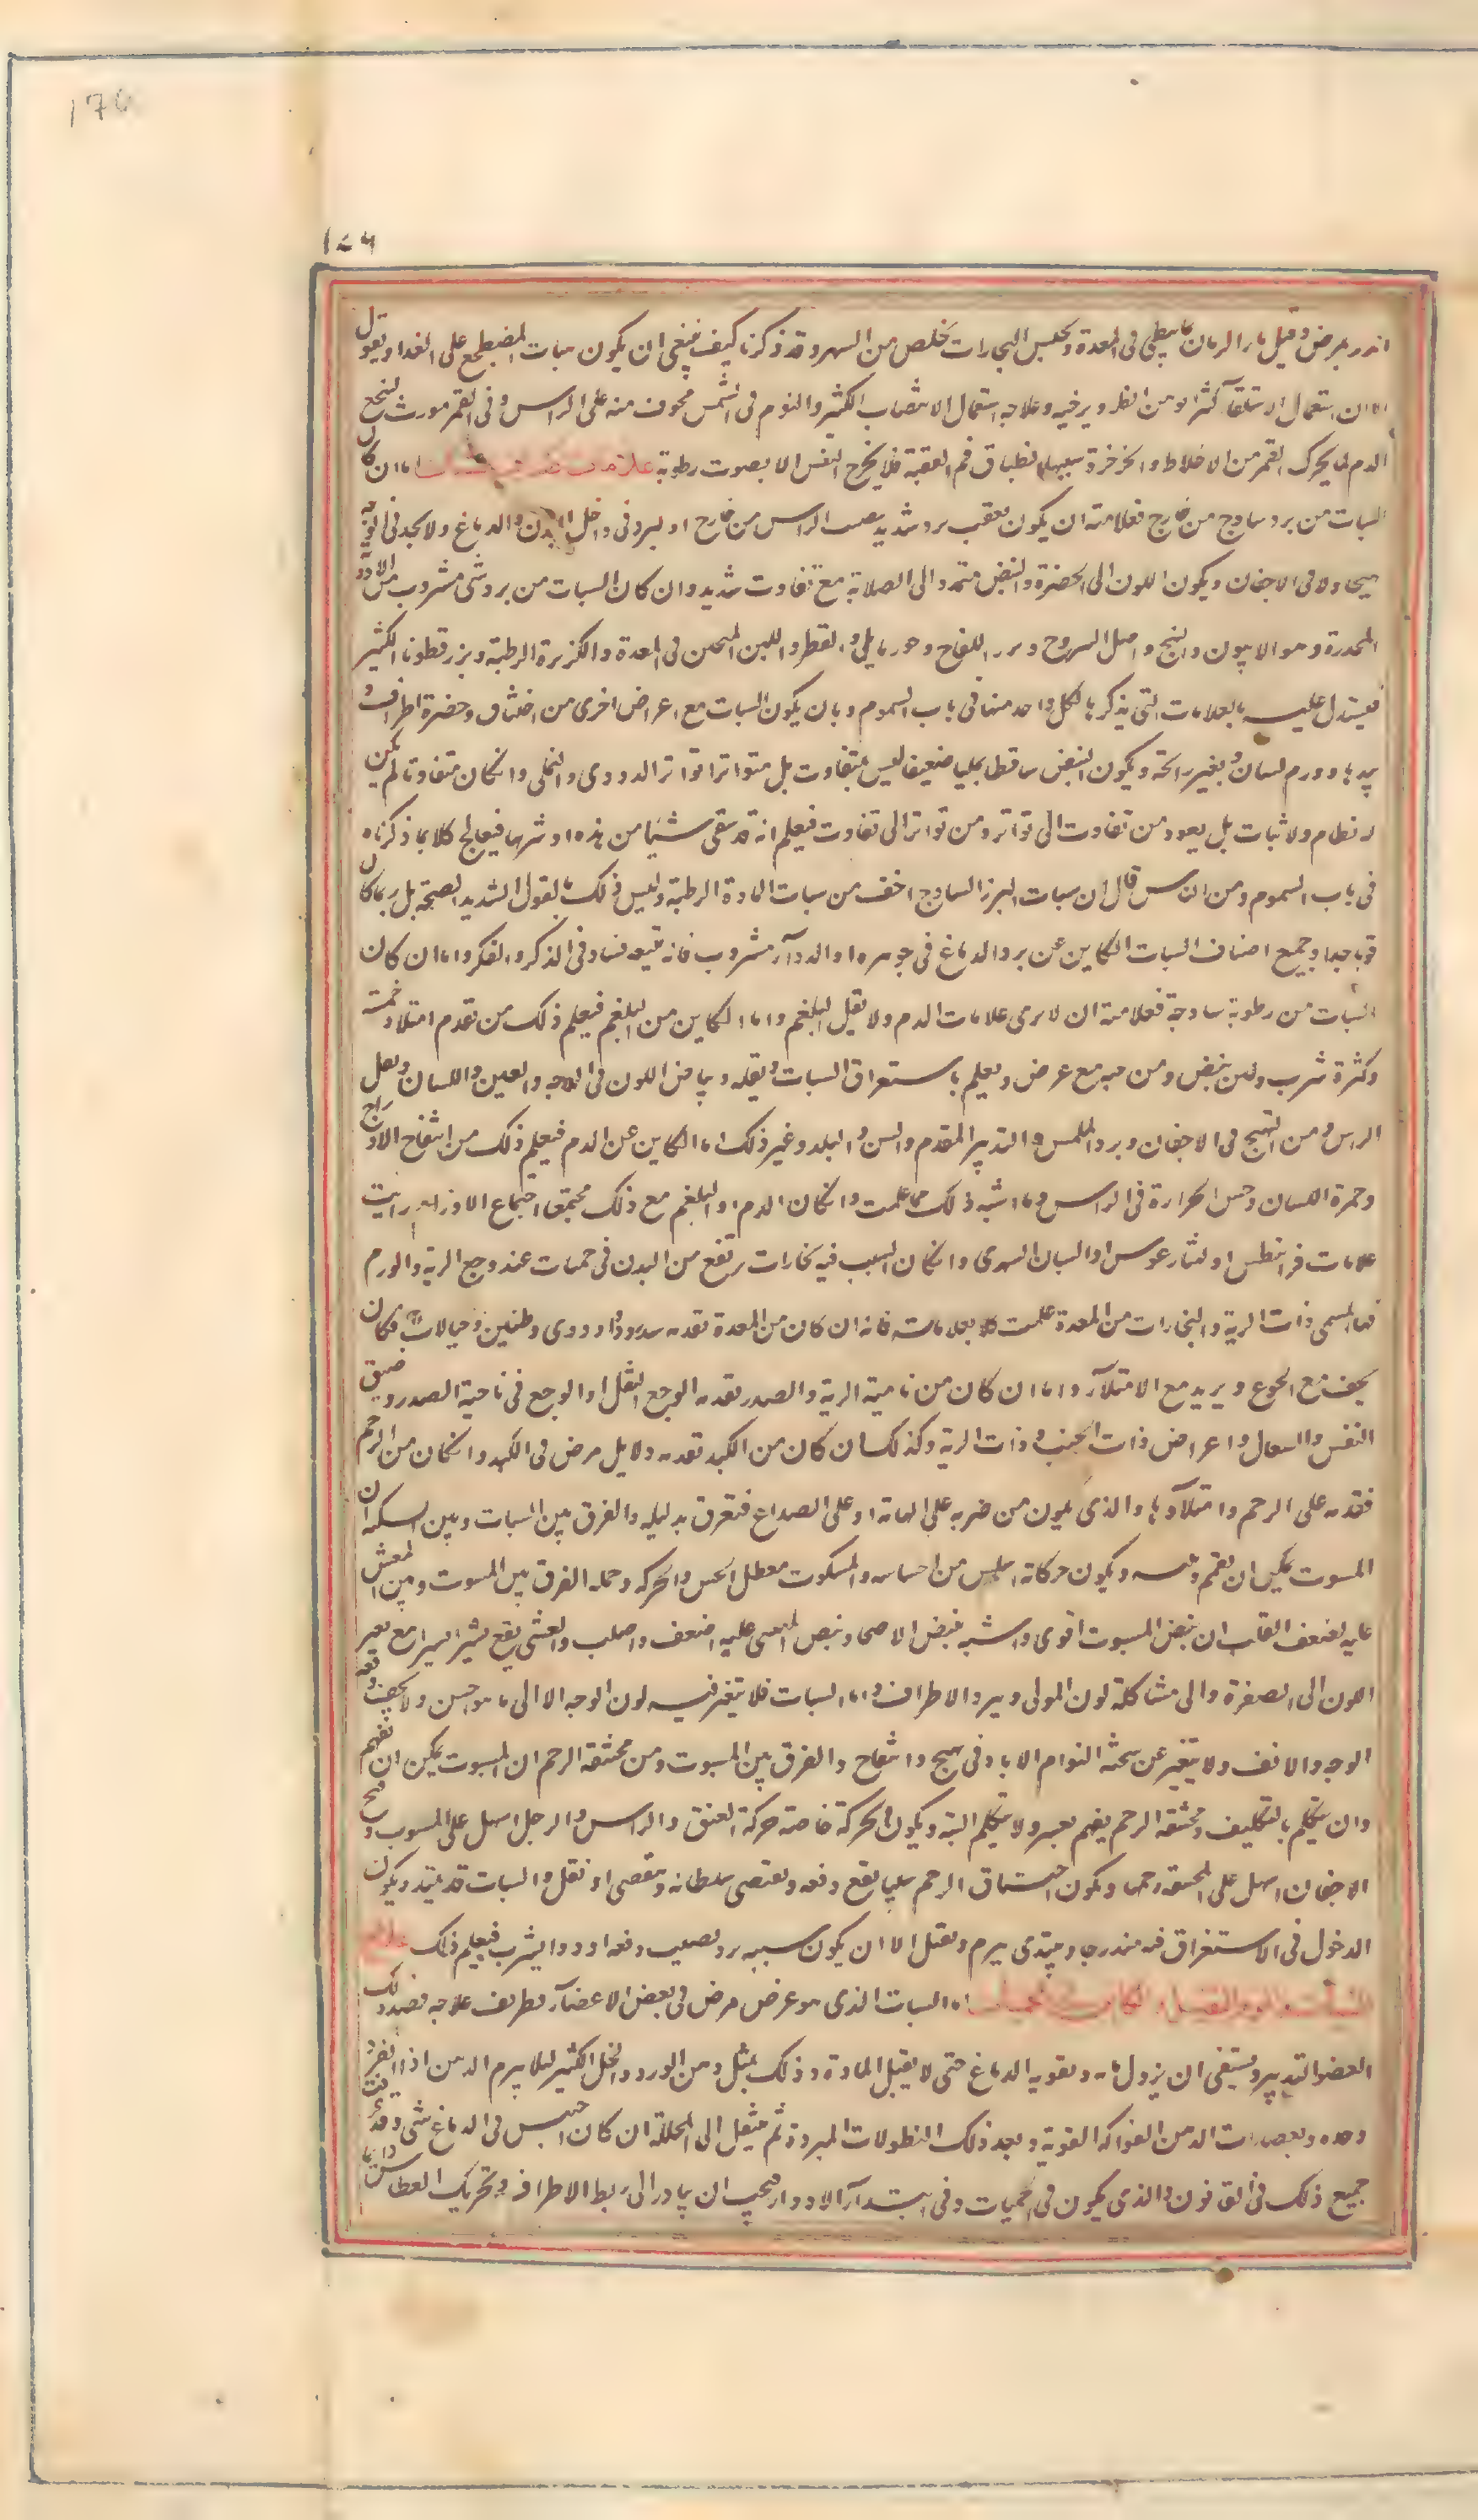 ١٧٩
انذر بمرض وقيل ماء الرمان يبطئ فى المعدة ويحبس البخارات يخلص من السهر وقد ذكرنا كيف ينبغى ان يكون سبات المضطجع على الغذا ويقول
الان استعمال الاستلقاء كثيرا يوهن الظهر ويرخيه وعلاجه استعمال الانتصاب الكثير والنوم فى الشمس مخوف منه على الراس وفى القمر مورث لتنخع
الدم لما يحرك القمر من الاخلاط والخرخرة سببها انطباق فم القصبة فلا يخرج النفس الا بصوت رطوبة اما ان كان
السبات من برد ساذج من خارج فعلامته ان يكون بعقب برد شديد يصيب الراس من خارج او لبرد فى داخل البدن والدماغ ولا يجد فى الوجه
تهيجا ولا فى الاجفان ويكون اللون الى الخضرة والنبض متمدد الى الصلابة مع تفاوت شديد وان كان السبات من برد شئ مشروب من الادوية
المخدرة وهو الافيون والبنج واصل اليبروح وبزر اللفاح وجوز ماثل والفطر واللبن المتجبن فى المعدة والكزبرة الرطبة وبزر قطونا الكثير
فيستدل عليه بالعلامات التى نذكرها لكل واحد منها فى باب السموم وبان يكون السبات مع اعراض اخرى من اختناق وخضرة اطراف و
بردها وورم لسان وتغير رائحة ويكون النبض ساقطا نمليا ضعيفا ليس بمتفاوت بل متواترا تواتر الدودى والنملى وان كان متفاوتا لم يكن
له نظام ولا ثبات بل يعود من تفاوت الى تواتر ومن تواتر الى تفاوت فيعلم انه قد سقى شيئا من هذه او شربها فيعالج كلا بما ذكرناه
فى باب السموم ومن الناس قال ان سبات البرد الساذج اخف من سبات المادة الرطبة وليس ذلك بالقول الشديد الصحة بل ربما كان
قويا جدا وجميع اصناف السبات الكاين عن برد الدماغ فى جوهره او الدواء مشروب فانه يتبعه فساد فى الذكر والفكر واما ان كان
السبات من رطوبة ساذجة فعلامته ان لا يرى علامات الدم ولا ثقل البلغم واما الكاين من البلغم فيعلم ذلك من تقدم امتلاء وتخمة
وكثرة شرب ولين نبض ومن مع عرض ويعلم باستغراق السبات وثقله وبياض اللون فى الوجه والعين واللسان وثقل
الراس ومن التهيج فى الاجفان وبرد الملمس والتدبير المتقدم والسن والبلد وغير ذلك اما الكاين عن الدم فيعلم ذلك من انتفاخ الاوداج
وحمرة اللسان وحس الحرارة فى الراس وما اشبه ذلك مما علمت وان كان الدم او البلغم مع ذلك مجتمعا اجتماع الاورام رايت
علامات قرانيطس او ليثارغوس او السبات السهرى وان كان السبب فيه بخارات ترتفع من البدن فى حميات عند وجع الرية والورم
فيها المسمى ذات الرية والبخارات من المعدة علمت كلا بعلاماته فانه ان كان من المعدة تقدمه سدر ودوار ودوى وطنين وخيالات وكان
يخف مع الجوع ويزيد مع الامتلاء واما ان كان من ناحية الرية والصدر تقدمه الوجع الثقل او الوجع فى ناحية الصدر وضيق
النفس والسعال واعراض ذات الجنب وذات الرية وكذلك ان كان من الكبد تقدمه دلايل مرض فى الكبد وان كان من الرحم
فتقدمه علل الرحم وامتلاوها والذى يكون من ضربه على الهامة او على الصداغ فتعرف بدليله والفرق بين السبات وبين السكتة ان
المسبوت يمكن ان يفهم وينبه ويكون حركاته اسلس من احساسه والمسكوت معطل الحس والحركة وجملة الفرق بين المسبوت وبين المغشى
عليه لضعف القلب ان نبض المسبوت اقوى واشبه بنبض الاصحا ونبض المغشى عليه اضعف واصلب والغشى يقع يسيرا يسيرا مع تغير
اللون الى الصفرة والى مشاكلة لون الموتى ويبرد الاطراف واما السبات فلا يتغير فيه لون الوجه الا الى ما هو احسن ولا ينحف رقعه
الوجه والانف ولا يتغير عن سحنة النوام الا بادنى تهيج وانتفاخ والفرق بين المسبوت ومن مختنقة الرحم ان المسبوت يمكن ان يفهم
وان يتكلم بالتكليف ومختنقة الرحم يفهم بعسر ولا يتكلم البتة ويكون الحركة خاصة حركة العنق والراس والرجل اسهل على المسبوت وفتح
الاجفان اسهل على المختنقة رحمها ويكون اختناق الرحم سببا يقع دفعة ويقتضى سلطانه وينقضى او يقتل والسبات قد يمتد ويكون
الدخول فى الاستغراق فيه متدرجا ويبتدى بنوم ثقيل الا ان يكون سببه برد يصيب دفعة او دواء يشرب فيعلم ذلك
اما السبات الذى هو عرض مرض فى بعض الاعضاء فطريق علاجه فصد ذلك
العضو بالتدبير ويستقى ان يزول ما به وتقوية الدماغ حتى لا يقبل المادة وذلك بمثل دهن الورد والخل الكثير ليلا ينوم الدهن اذا انفرد
وحده وبعصارات الدهن الفواكه القوية وبعد ذلك النطولات المبردة ثم ينتقل الى المحللة ان كان احتبس فى الدماغ شئ وقد عرفت
جميع ذلك فى القانون والذى يكون فى الحميات وفى ابتداء الادوار فيجب ان يبادر الى ربط الاطراف وتحريك العطاس دايما